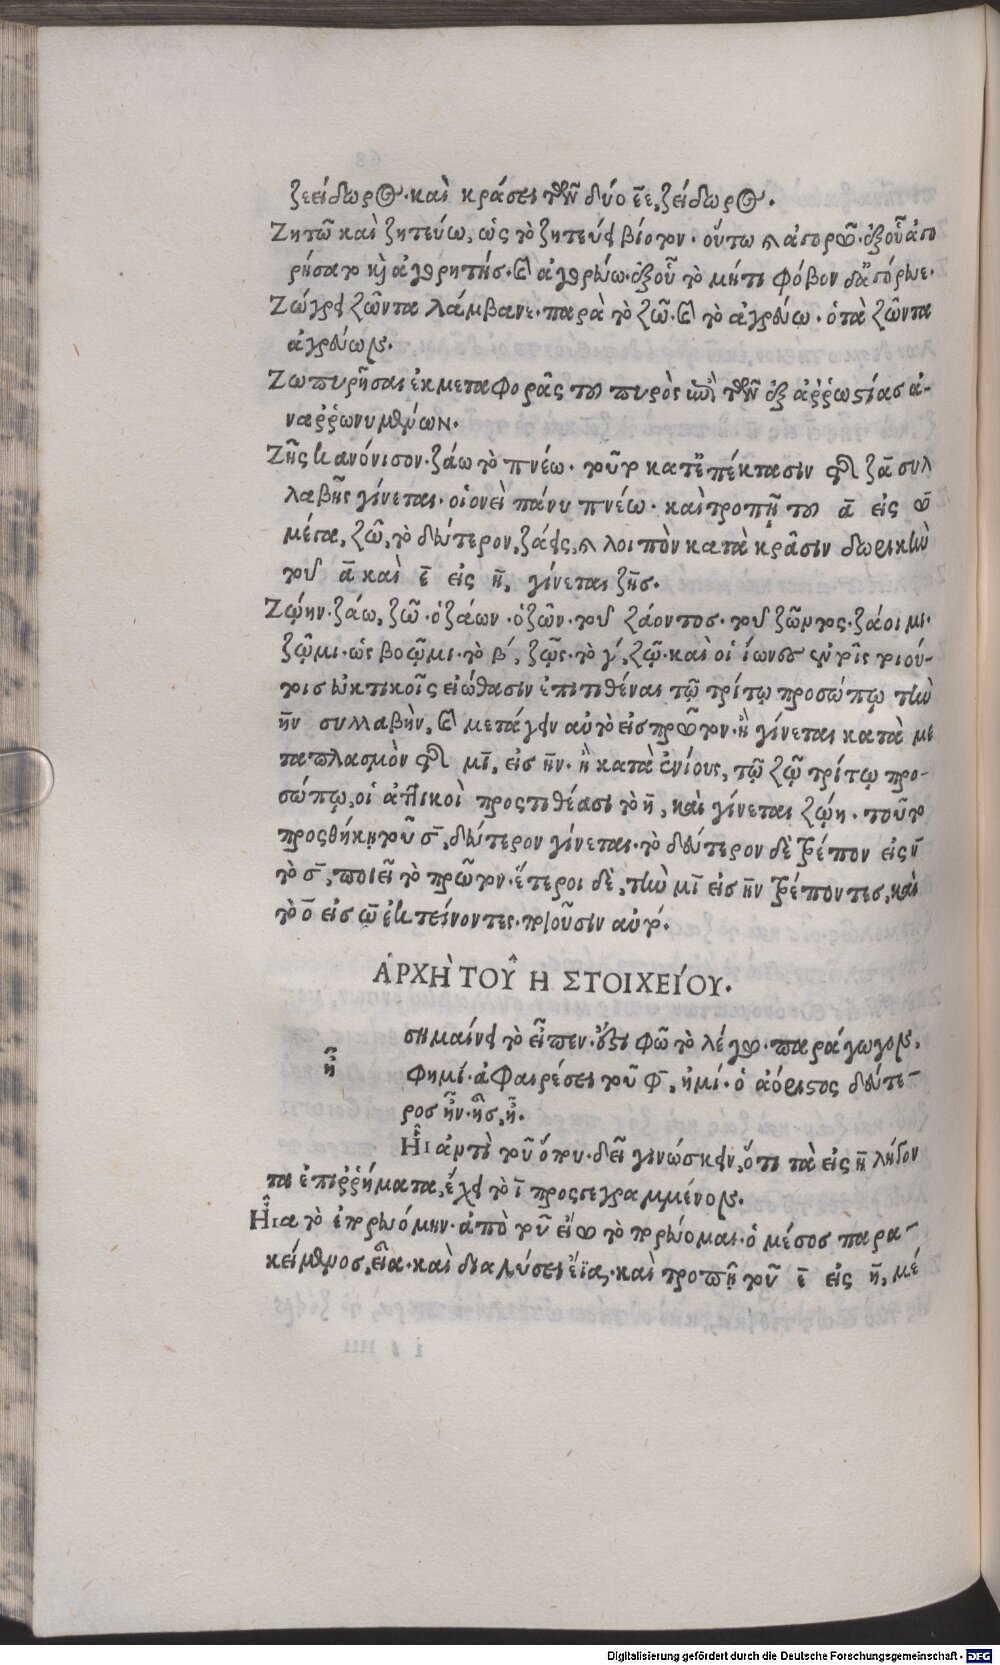 ζεείδωρος· καὶ κράσει τῶν δύο ε̄ε̄, ζείδωρος.
Ζητῶ καὶ ζητεύω, ὡς τὸ ζητεύει βίοτον· οὕτω καὶ ἀγορῶ· ἐξ οὗ ἀγο
ρήσατο καὶ ἀγορητής· καὶ ἀγορεύω· ἐξ οὗ τὸ μήτι φόβον δ' ἀγόρευε·
Ζώγρει ζῶντα λάμβανε· παρὰ τὸ ζῶ· καὶ τὸ ἀγρεύω· ὁ τὰ ζῶντα
ἀγρεύων.
Ζωπυρῆσαι ἐκ μεταφορᾶς τοῦ πυρὸς ἐπὶ τῶν ἐξ ἀῤῥωστίας ἀ-
ναῤῥωννυμένων.
Ζῆς κανόνισον· ζάω τὸ πνέω· τοῦτο κατ' ἐπέκτασιν τῆς ζᾱ συλ
λαβῆς γίνεται· οἱονεὶ πάνυ πνέω· καὶ τροπῇ τοῦ ᾱ εἰς ω̄
μέγα, ζῶ, τὸ δεύτερον, ζάεις, καὶ λοιπὸν κατὰ κρᾶσιν δωρικὴν
τοῦ ᾱ καὶ ε̄ εἰς η̄, γίνεται ζῆς.
Ζῴην· ζάω, ζῶ· ὁ ζάων· ὁ ζῶν· τοῦ ζάοντος· τοῦ ζῶντος· ζάοιμι·
ζῷμι· ὡς βοῷμι· τὸ β΄, ζῷς· τὸ γ΄, ζῷ· καὶ οἱ ἴωνες ἐν τοῖς τοιού-
τοις εὐκτικοῖς εἰώθασιν ἐπιτιθέναι τῷ τρίτῳ προσώπῳ τὴν
η̄ν συλλαβὴν, καὶ μετάγειν αὐτὸ εἰς πρῶτον· ἢ γίνεται κατὰ με
ταπλασμὸν τῆς μῑ, εἰς η̄ν· ἢ κατὰ ἐνίους, τῷ ζῷ τρίτῳ προ-
σώπῳ, οἱ ἀττικοὶ προστιθέασι τὸ η̄, καὶ γίνεται ζῴη· τοῦτο
προσθήκῃ τοῦ σ̄, δεύτερον γίνεται· τὸ δεύτερον δὲ τρέπον εἰς ν̄
τὸ σ̄, ποιεῖ τὸ πρῶτον· ἕτεροι δὲ, τὴν μῑ εἰς η̄ν τρέποντες, καὶ
τὸ ο̄ εἰς ω̄ ἐκτείνοντες· ποιοῦσιν αὐτό.
ἈΡΧῊ ΤΟΥ͂ Η ΣΤΟΙΧΕΊΟΥ.
σημαίνει τὸ εἶπεν· ἔστι φῶ τὸ λέγω· παράγωγον,
ἦ φημί· ἀφαιρέσει τοῦ φ̄, ἠμί· ὁ ἀόριστος δεύτε-
ρος ἦν· ἦς, ἦ.
Ἧι ἀντὶ τοῦ ὅπου· δεῖ γινώσκειν, ὅτι τὰ εἰς η̄ λήγον
τα ἐπιῤῥήματα, ἔχει τὸ ῑ προσγεγραμμένον.
Ἦια τὸ ἐπορευόμην· ἀπὸ τοῦ εἴω τὸ πορεύομαι· ὁ μέσος παρα-
κείμενος, εἶα· καὶ διαλύσει ἔϊα, καὶ τροπῇ τοῦ ε̄ εἰς η̄, μέ
Digitalisierung gefördert durch die Deutsche Forschungsgemeinschaft - DFG